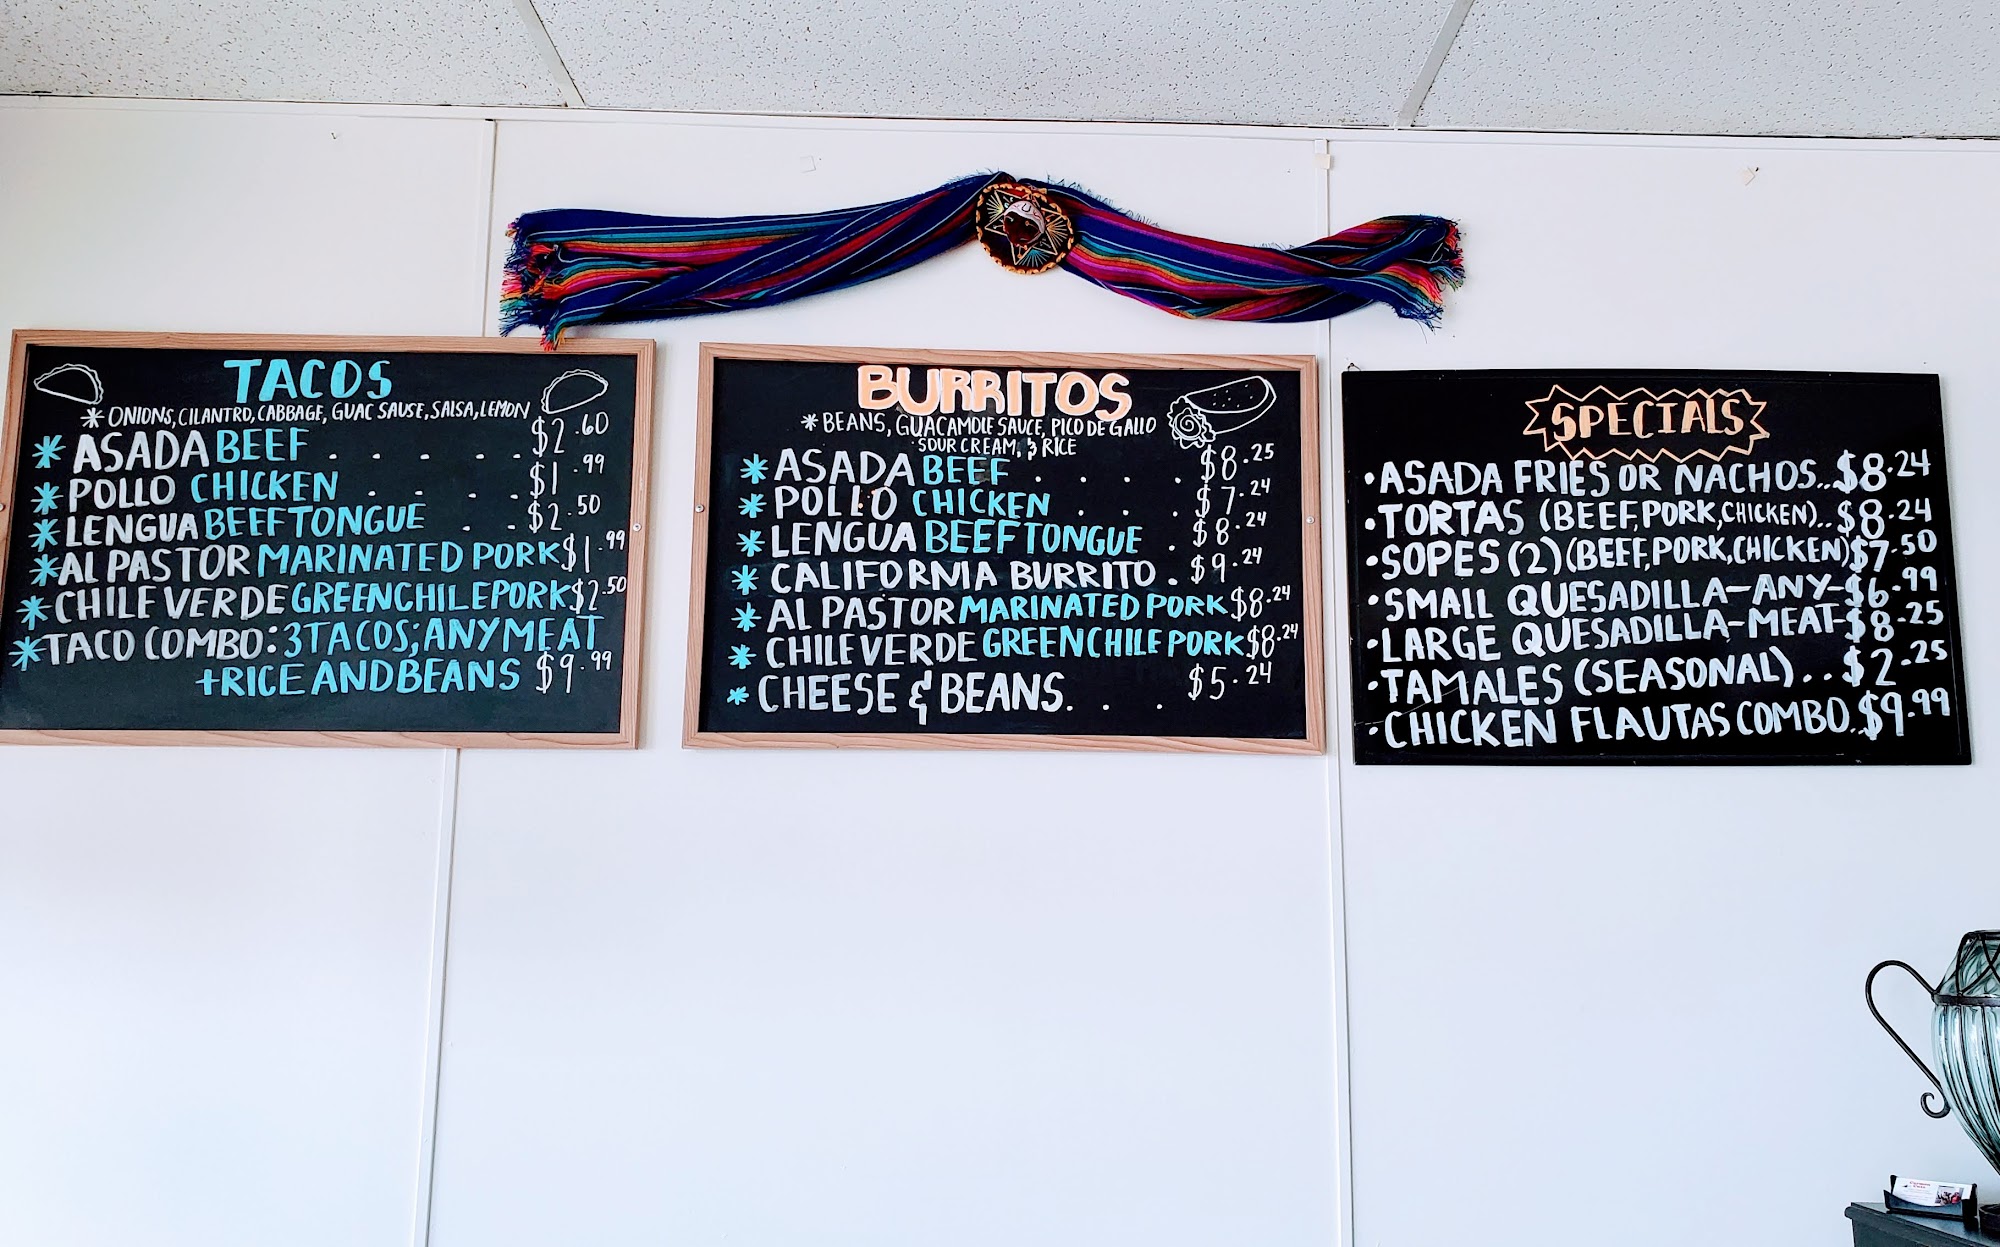 TACOS
* ONIONS, CILANTRO, CABBAGE, GUAC SAUSE, SALSA, LEMON
* ASADA BEEF . . . . . $2.60
* POLLO CHICKEN . . . . $1.99
* LENGUA BEEF TONGUE . . $2.50
* AL PASTOR MARINATED PORK $1.99
* CHILE VERDE GREEN CHILE PORK $2.50
* TACO COMBO: 3 TACOS; ANY MEAT
+ RICE AND BEANS $9.99
BURRITOS
* BEANS, GUACAMOLE SAUCE, PICO DE GALLO
SOUR CREAM, & RICE
* ASADA BEEF . . . . $8.25
* POLLO CHICKEN . . . . $7.24
* LENGUA BEEF TONGUE . $8.24
* CALIFORNIA BURRITO . $9.24
* AL PASTOR MARINATED PORK $8.24
* CHILE VERDE GREEN CHILE PORK $8.24
* CHEESE & BEANS. . . $5.24
SPECIALS
• ASADA FRIES OR NACHOS..$8.24
• TORTAS (BEEF, PORK, CHICKEN)..$8.24
• SOPES (2) (BEEF, PORK, CHICKEN) $7.50
• SMALL QUESADILLA-ANY-$6.99
• LARGE QUESADILLA-MEAT-$8.25
• TAMALES (SEASONAL)..$2.25
• CHICKEN FLAUTAS COMBO..$9.99